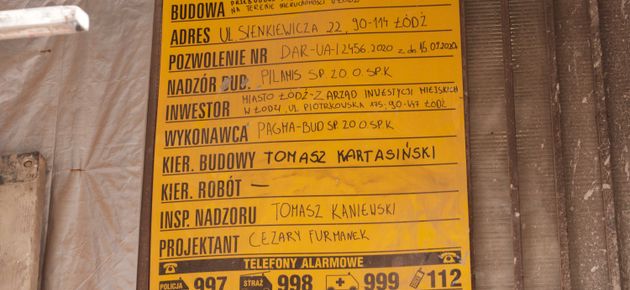 BUDOWA PRZEBUDOWA
NA TERENIE NIERUCHOMOŚCI
ADRES UL. SIENKIEWICZA 22, 90-114 ŁÓDŹ
POZWOLENIE NR DAR-UA-I 2456.2020 z do 15.09.2020
NADZÓR BUD. PILAHIS SP. Z O. SP. K
INWESTOR MIASTO ŁÓDŹ-ZARZĄD INWESTYCJI MIEJSKICH
W ŁODZI, UL. PIOTRKOWSKA 175, 90-447 ŁÓDŹ
WYKONAWCA PAGMA-BUD SP. Z O. O SP.K
KIER. BUDOWY TOMASZ KARTASIŃSKI
KIER. ROBÓT —
INSP. NADZORU TOMASZ KANIEWSKI
PROJEKTANT CEZARY FURMANEK
TELEFONY ALARMOWE
POLICJA 997 STRAŻ 998 999 112